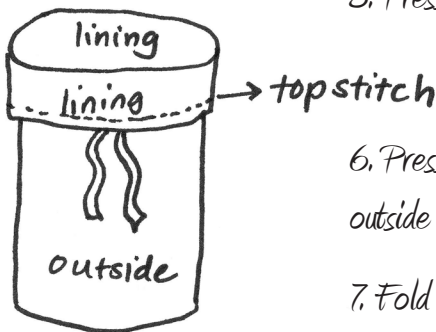 lining
lining
topstitch
outside
5. Press
6. Press
outside
7. Fold